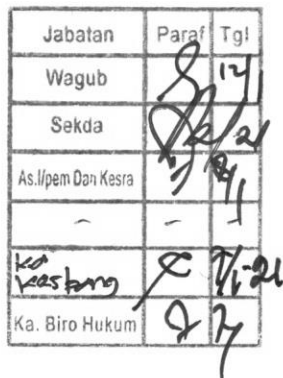 Jabatan Paraf Tgl
Wagub 12/1
Sekda
As.I/pem Dan Kesra
- -
Ka Kesbang 7/1-21
Ka. Biro Hukum